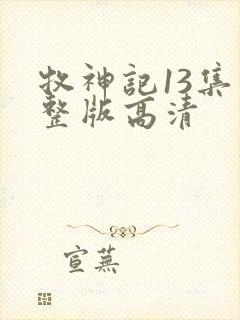 牧神記13集
整版高清
宣蕪